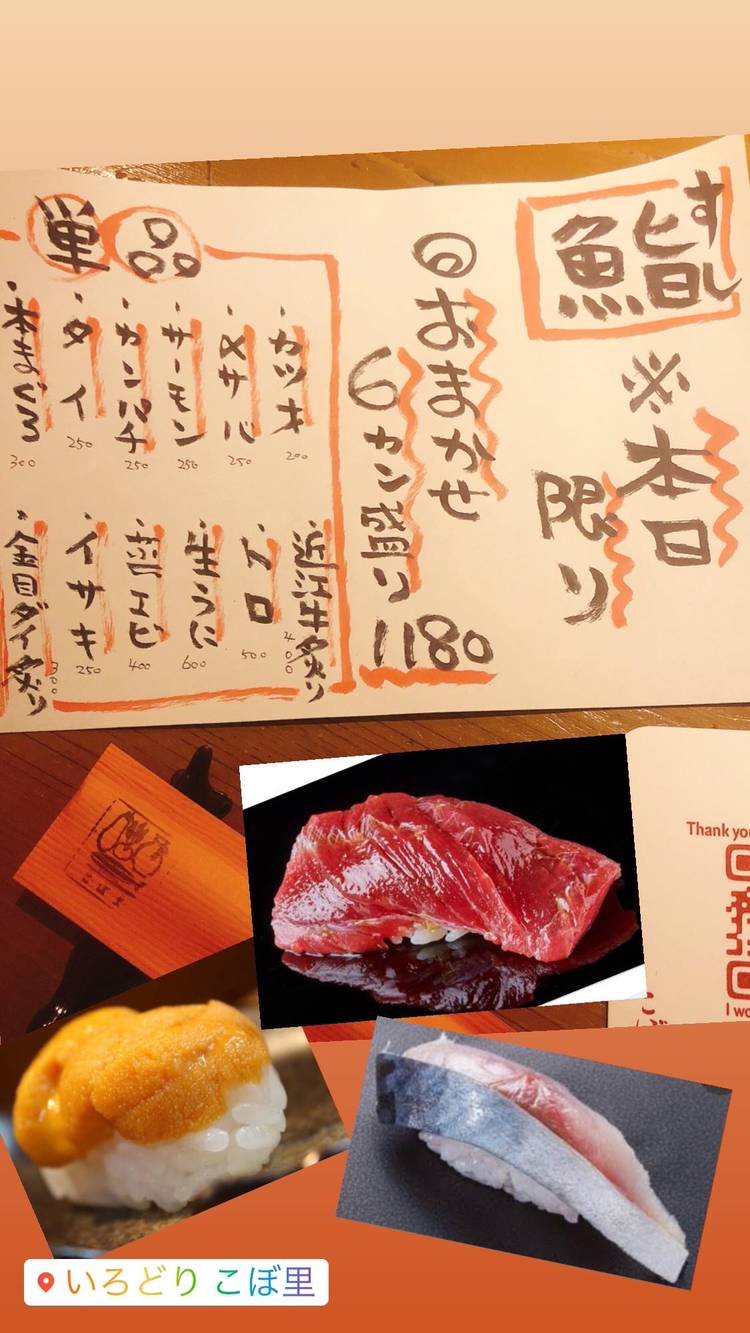 鮨
すし
※本日
限り
◎おまかせ
6カン盛り
1180
単品
・カツオ
200
・〆サバ
250
・サーモン
250
・カンパチ
250
・タイ
250
・本まぐろ
300
・近江牛炙り
400
・トロ
500
・生うに
600
・甘エビ
400
・イサキ
250
・金目ダイ炙り
300
こぼ里
Thank you
I wo
いろどり こぼ里